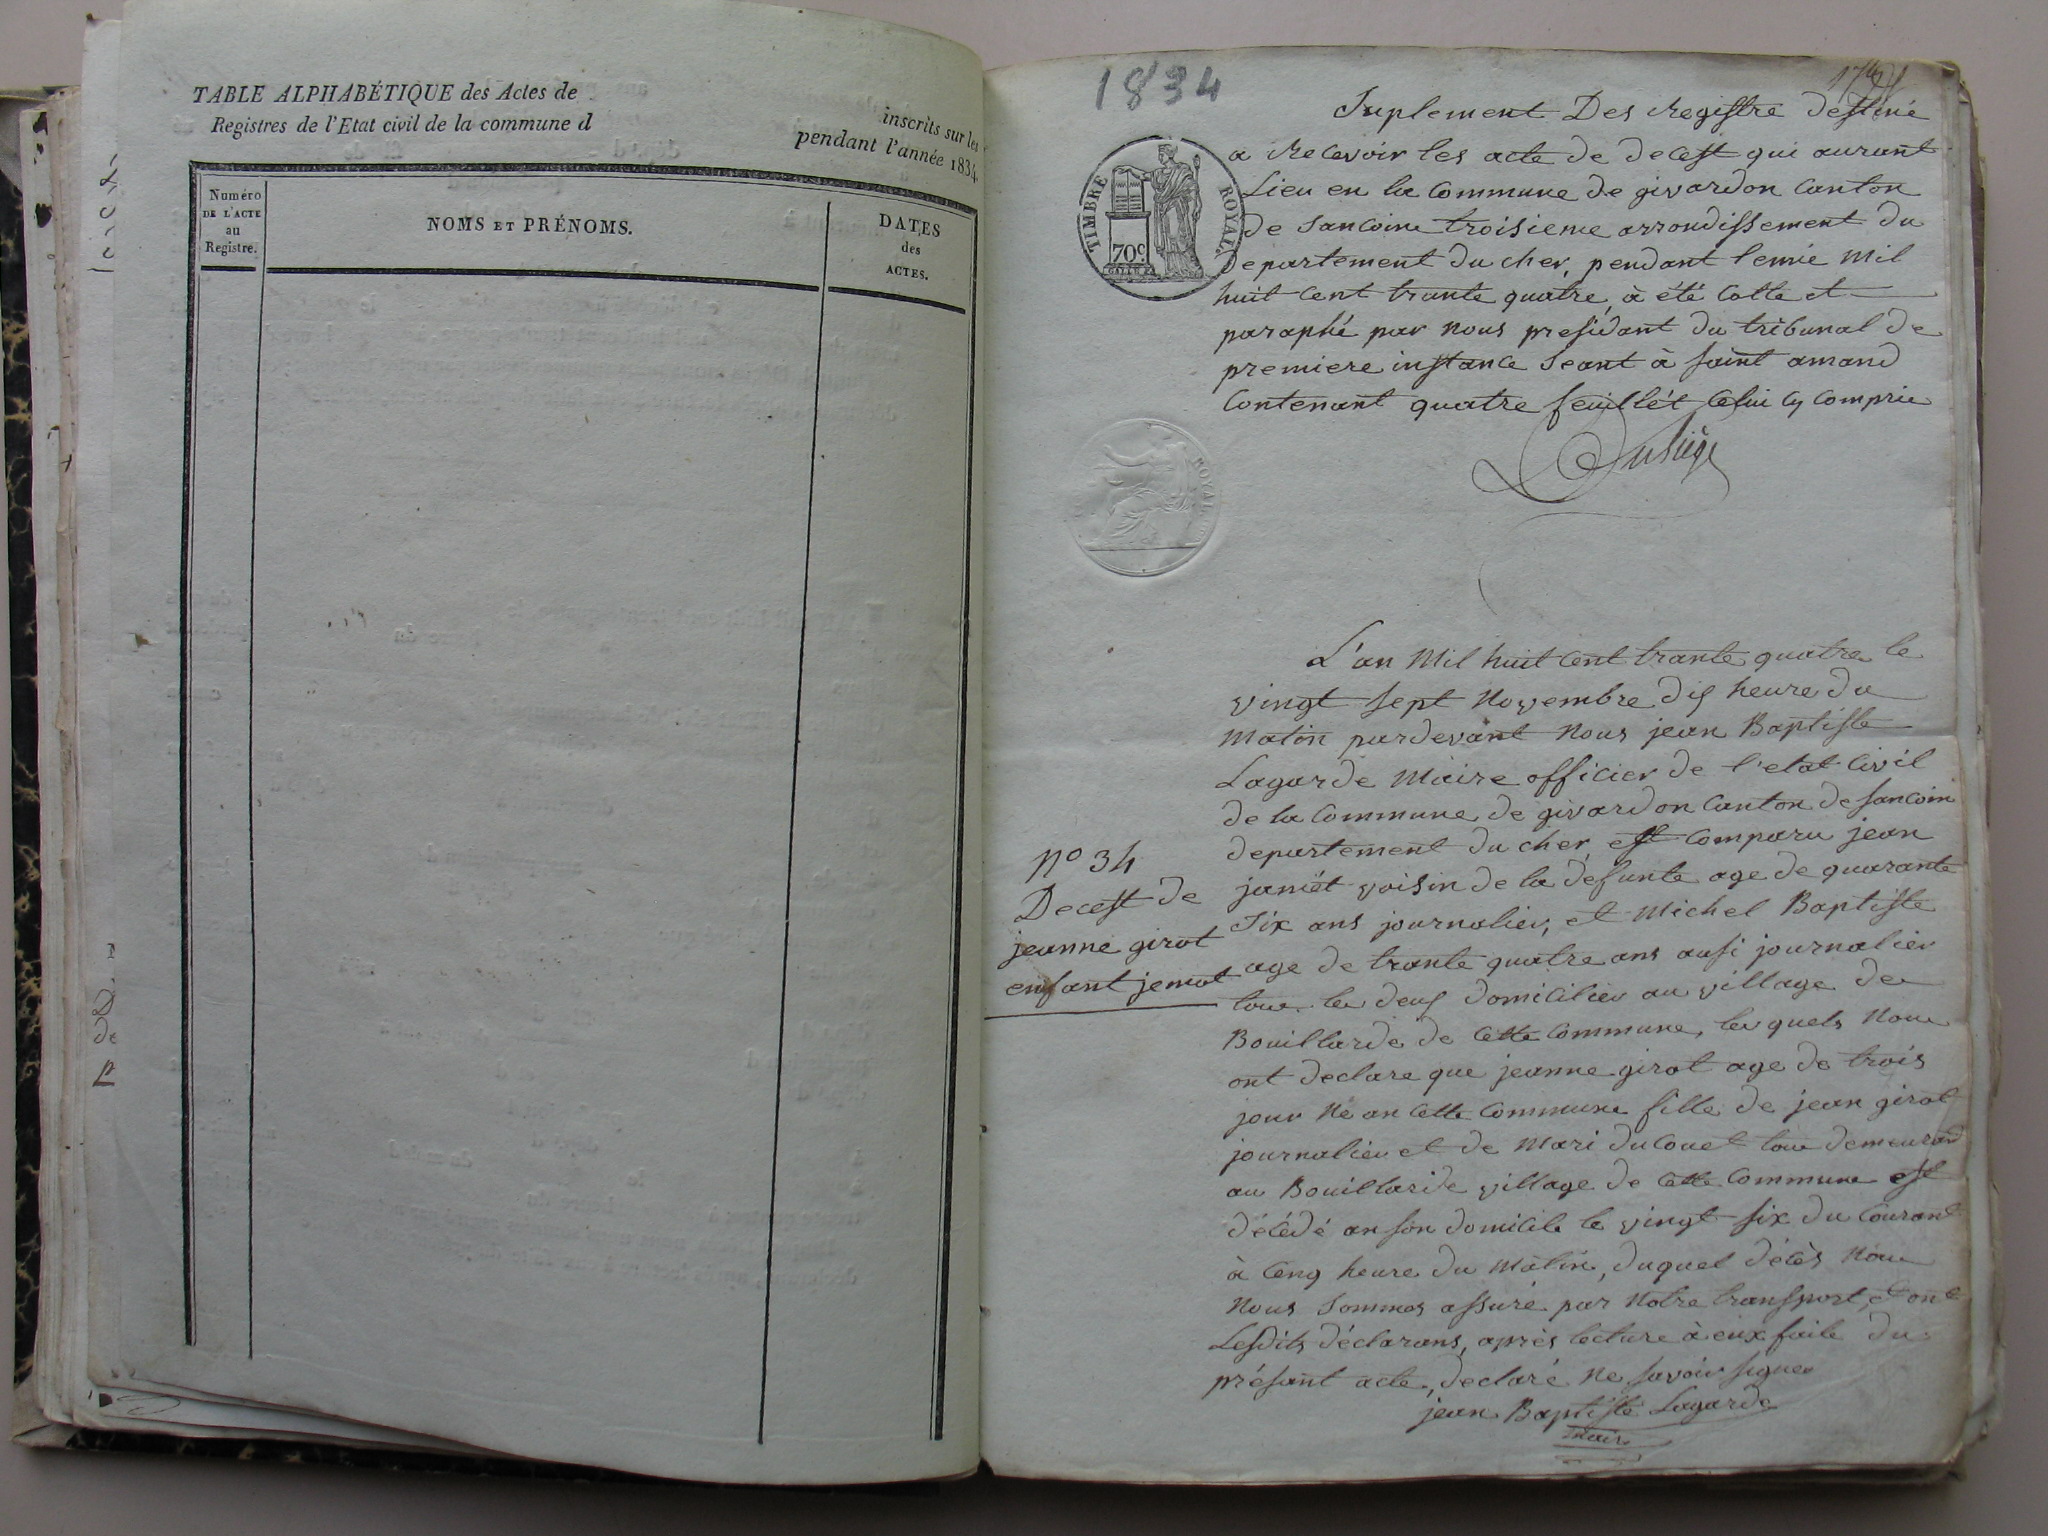 TABLE ALPHABÉTIQUE des Actes de
inscrits sur les
Registres de l'Etat civil de la commune d
pendant l'année 1834.
Numéro
DE L'ACTE
au
Registre.
NOMS ET PRÉNOMS.
DATES
des
ACTES.
1834
Suplement Des Registre destiné
a Recevoir les acte de decest qui aurant
Lieu en la Commune de givardon Canton
de Sancoine troisieme arrondissement du
departement du cher, pendant l'enné Mil
huit cent trante quatre, à été Cotte et
paraphé par nous presidant du tribunal de
premiere instance Seant à saint amand
Contenant quatre feuillét Celui cy comprie
TIMBRE ROYAL
70c
ROYAL
L'an Mil huit cent trante quatre le
vingt sept Novembre dis heure du
Matin pardevant Nous jean Baptiste
Lagarde Maire officier de l'etat Civil
de la Commune de givardon Canton de sancoin
departement du cher, est comparu jean
jamét voisin de la defunte age de quarante
Six ans journalier, et Michel Baptiste
age de trante quatre ans ausi journalier
tous les deus domicilier au village de
Bouillarde de Cette Commune, les quels Nous
ont declare que jeanne girot age de trois
jour Né an Cette Commune fille de jean girot
journalier et de Mari du Couet tous demeurand
au Bouillarde village de Cette Commune est
décédé an son domicile le vingt six du Courant
à Cenq heure du Matin, duquel décès Nous
Nous Sommes assuré par Notre transport, et ont
Lesdits déclarans, après lecture à eux faite du
présant acte, declaré Ne savoir signer
jean Baptiste Lagarde
Maire
No 34
Decest de
jeanne girot
enfant jemot